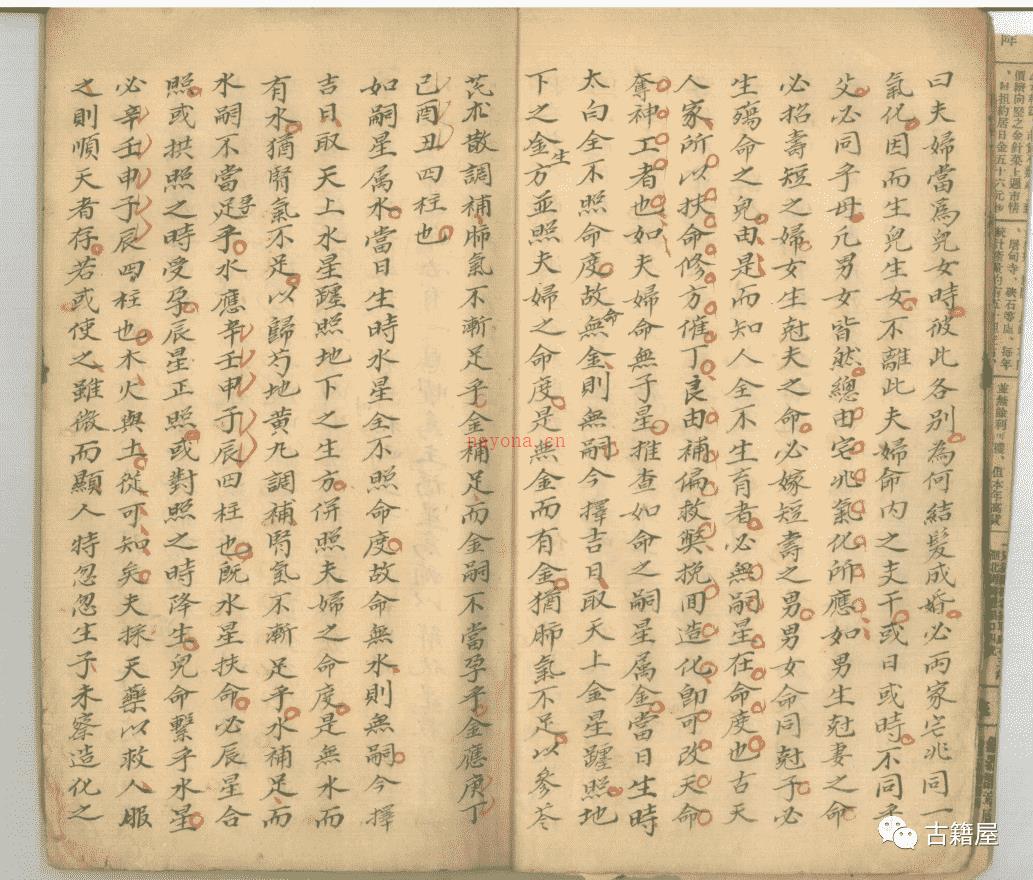 曰夫婦當爲兒女時彼此各別為何結髮成婚必両家宅兆同一
氣化因而生兒生女不離此夫婦命内之支干或日或時不同乎
父必同乎母凢男女皆然總由宅兆氣化所應如男生尅妻之命
必招壽短之婦女生尅夫之命必嫁短壽之男男女命同尅子必
生殤命之兒由是而知人全不生育者必無嗣星在命度也古天
人家所以扶命修方催丁良由補偏救獘挽囬造化即可改天命
奪神工者也如夫婦命無子星推查如命之嗣星属金當日生時
太白全不照命度故命無金則無嗣今擇吉日取天上金星躔照地
下之金生方並照夫婦之命度是無金而有金猶肺氣不足以參苓
芪朮散調補肺氣不漸足乎金補足而金嗣不當孕乎金應庚丁
己酉丑四柱也
如嗣星属水當日生時水星全不照命度故命無水則無嗣今擇
吉日取天上水星躔照地下之生方併照夫婦之命度是無水而
有水猶腎氣不足以歸芍地黄丸調補腎氣不漸足乎水補足而
水嗣不當孕乎水應辛壬申子辰四柱也既水星扶命必辰星合
照或拱照之時受孕辰星正照或對照之時降生兒命繫乎水星
必辛壬申子辰四柱也木火與土從可知矣夫採天藥以救人服
之則順天者存若或使之雖微而顯人特忽忽生子未察造化之
nayona.cn
古籍屋